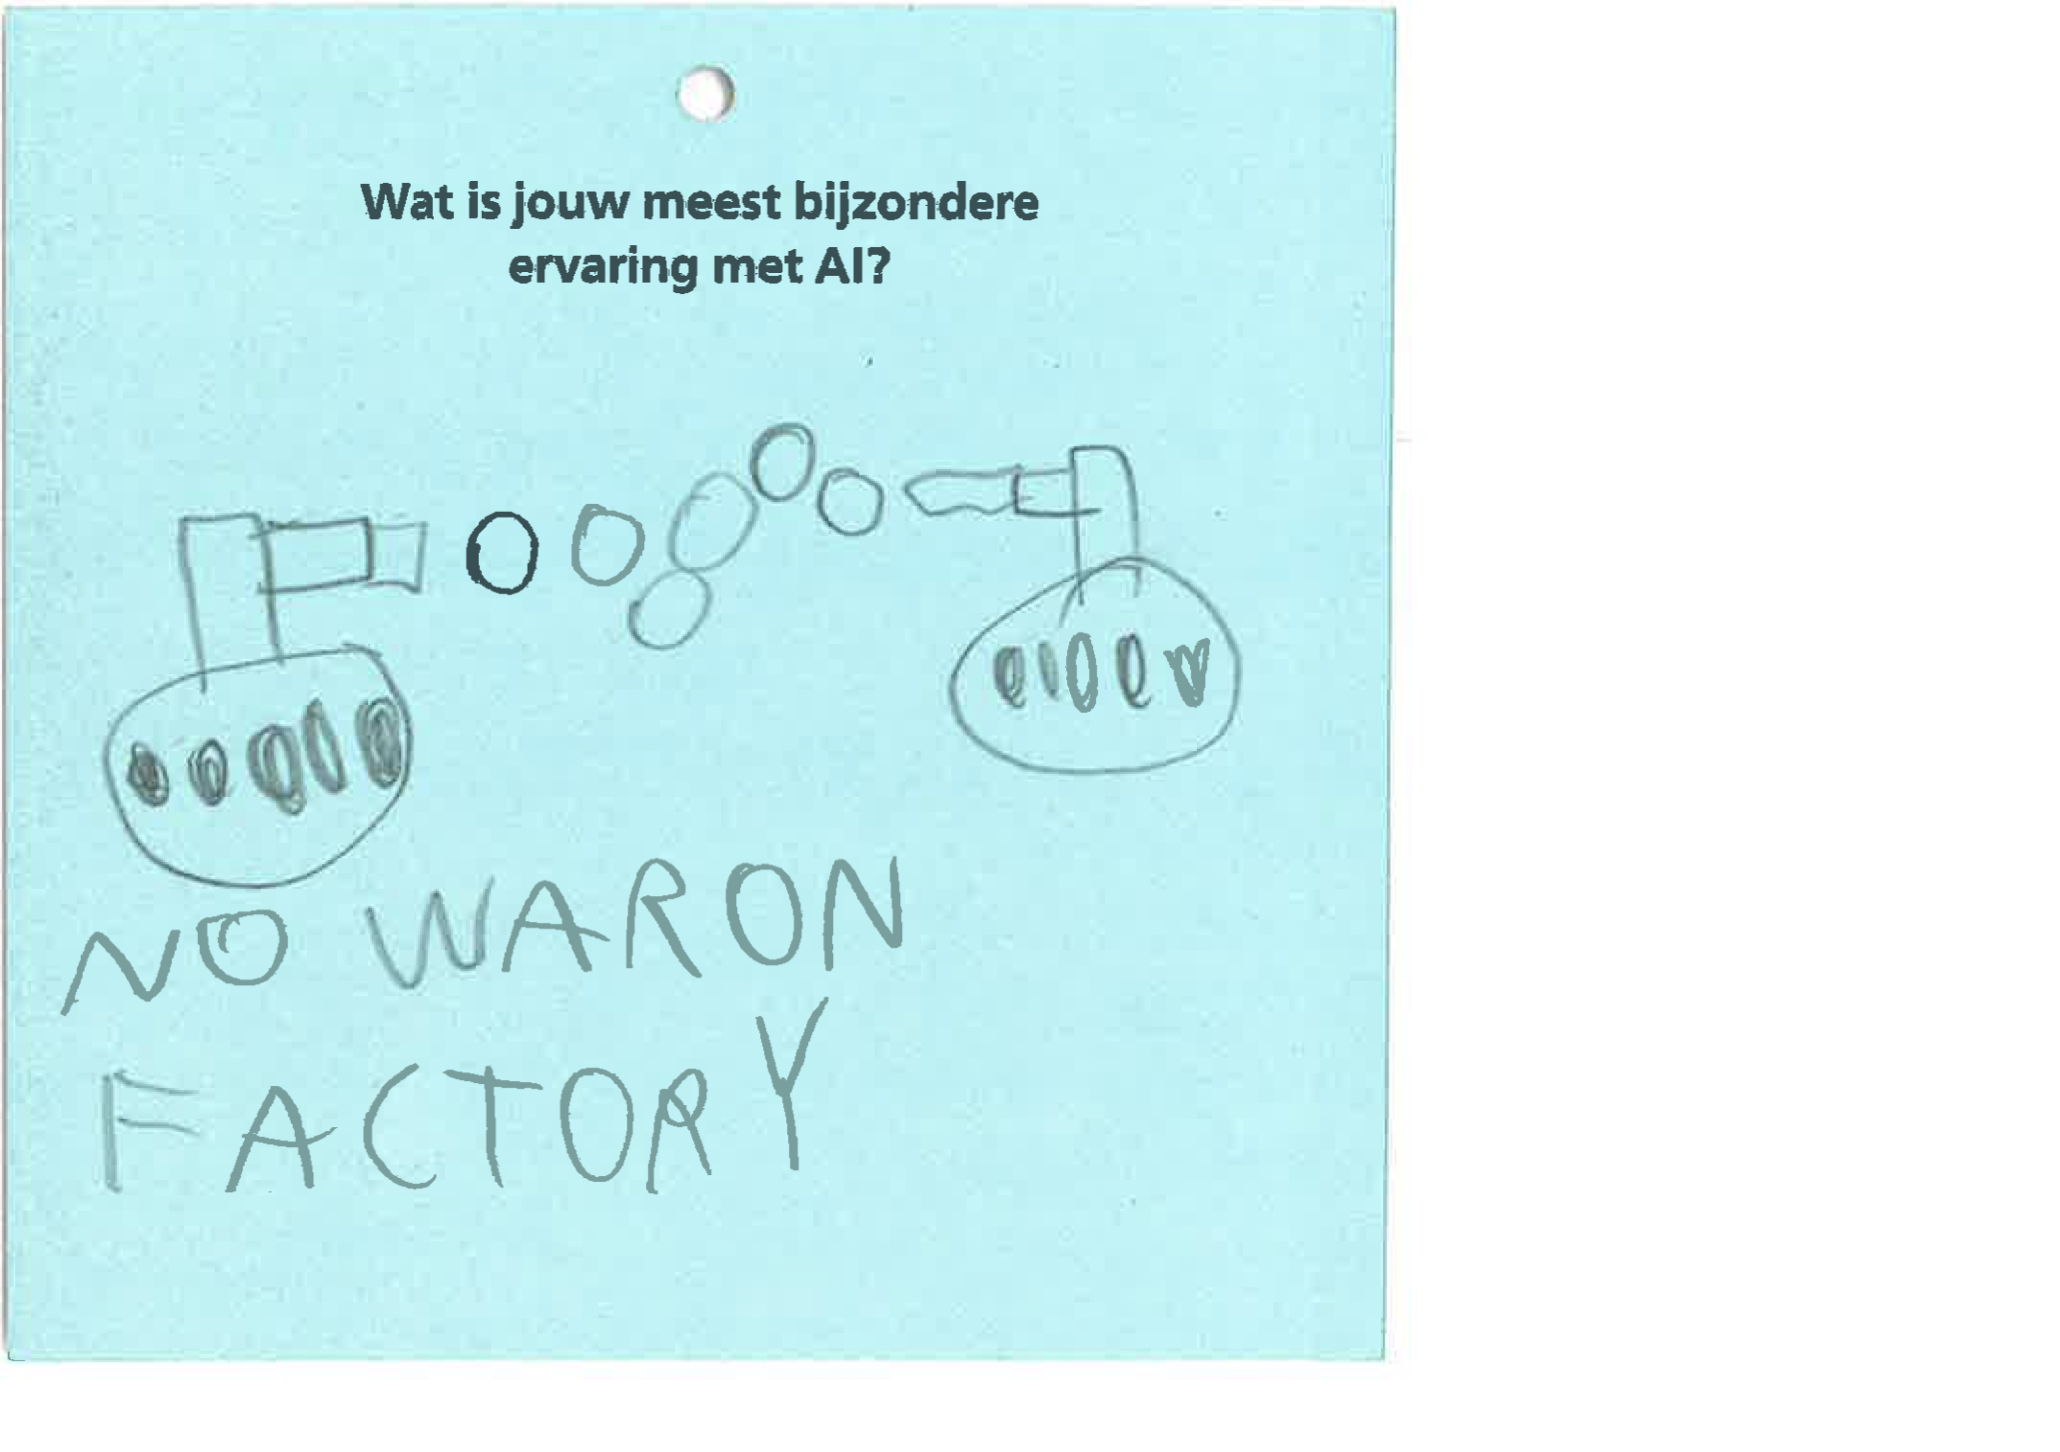 Wat is jouw meest bijzondere
ervaring met AI?
NO WARON
FACTORY